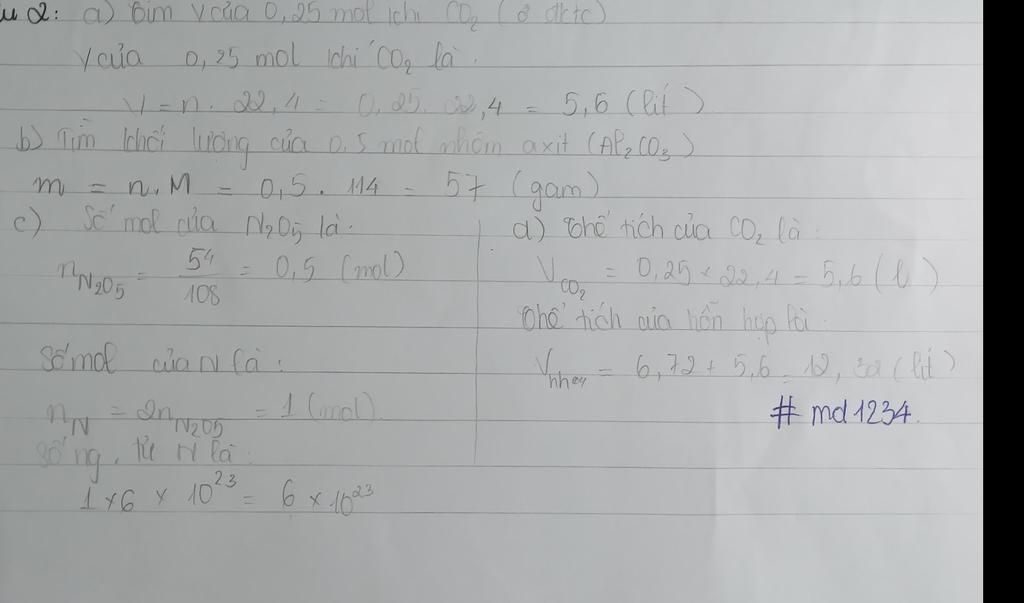 u 2: a) Tìm V của 0,25 mol khí CO₂ (ở đktc)
V của 0,25 mol khí CO₂ là.
V = n. 22,4 = 0,25. 22,4 = 5,6 (lít)
b) Tìm khối lượng của 0,5 mol nhôm axit (Al₂CO₃)
m = n.M = 0,5 . 114 = 57 (gam)
c) Số mol của N₂O₅ là:
n_N₂O₅ = 54/108 = 0,5 (mol)
Số mol của N là:
n_N = 2n_N₂O₅ = 1 (mol)
Số ng. tử N là:
1 × 6 × 10²³ = 6 × 10²³
d) Thể tích của CO₂ là:
V_CO₂ = 0,25 × 22,4 = 5,6 (l)
Thể tích của hỗn hợp là:
= 6,72 + 5,6 = 12,32 (lít)
# md1234.